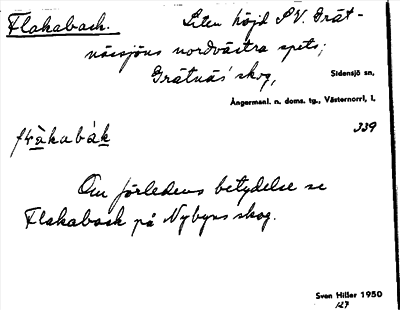 Flakaback. Liten höjd S.V. Gråt-
nässjöns nordvästra spets;
Gråtnäs' skog, Sidensjö sn,
Ångermanl. n. doms. tg., Västernorrl. l.
339
Om förledens betydelse se
Flakaback på Nybyns skog.
Sven Hiller 1950
127